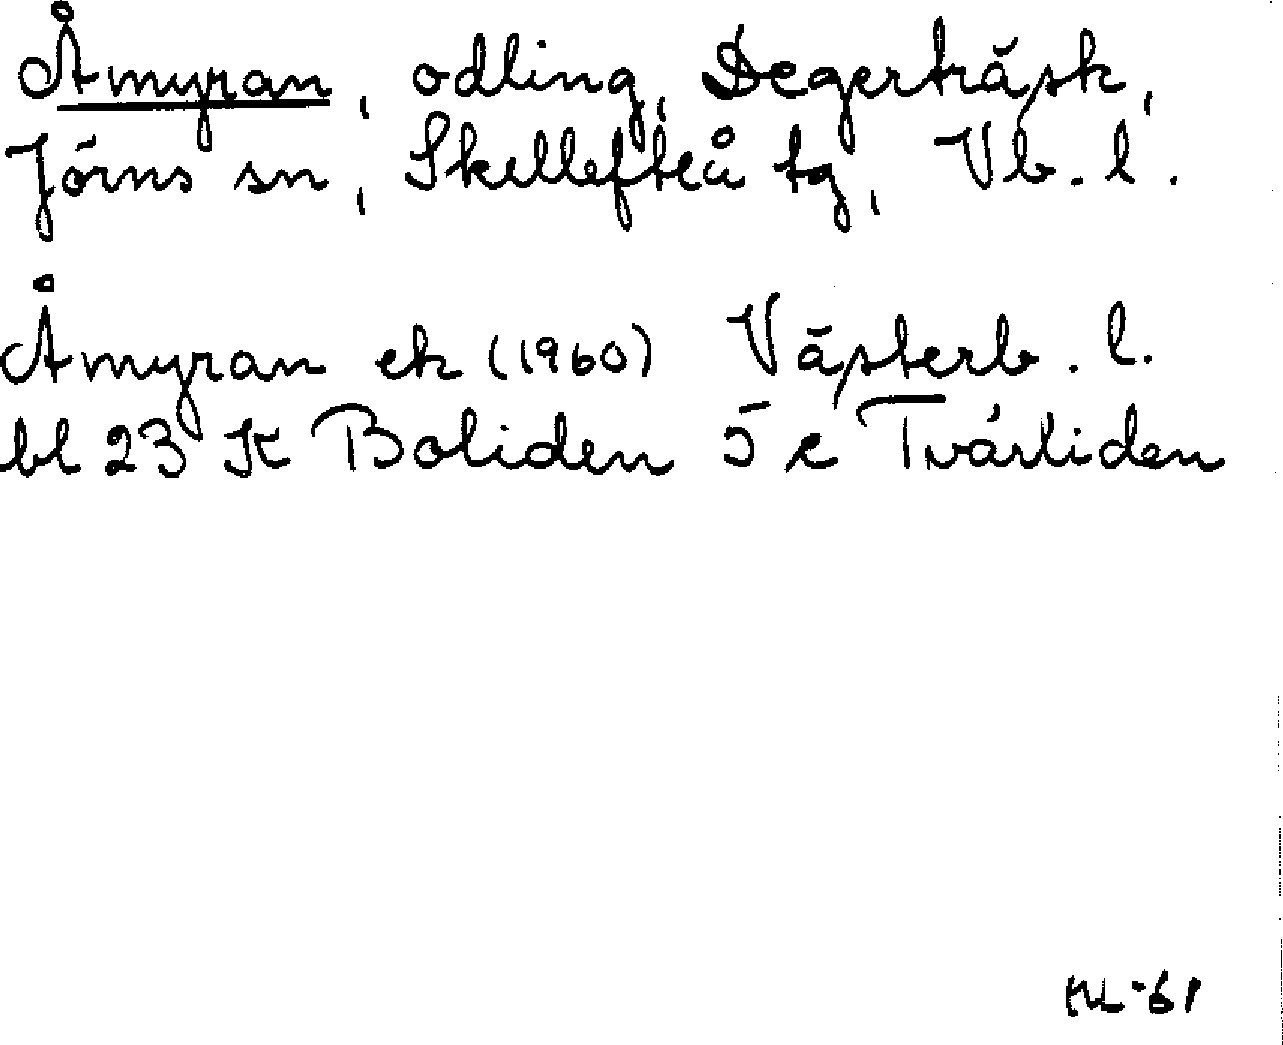 Åmyran, odling, Degerträsk,
Jörns sn, Skellefteå tg, Vb. l.
Åmyran ek (1960) Västerb. l.
bl 23 K Boliden 5 c Tvärliden
HL-61